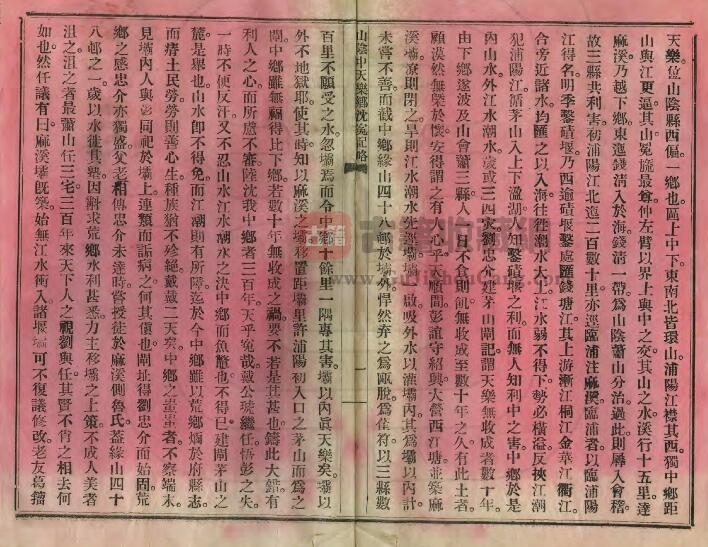 天樂位山陰縣西偏一鄉也區上中下東南北皆環山浦陽江襟其西獨中鄉距
山與江更逼其山冕旒最尊仲左臂以界上與中之交其山之水溪行十五里達
麻溪乃越下鄉東迤錢淸入於海錢淸一帶爲山陰蕭山分治過此則屬入會稽
故三縣共利害初浦陽江北迤二百數十里亦逕臨浦注麻溪臨浦者以臨浦陽
江得名明季鑿磧堰乃西逾磧堰鑿處匯錢塘江其上游漸江桐江金華江衢江
合旁近諸水均匯之以入海往往潮水大上江水弱不得下勢必橫溢反挾江潮
犯浦陽江循茅山入上下湖知鑿磧堰之利而無人知利中之害中鄉於是
內山水外江水潮水歲或三四灾劉忠介建茅山閘記謂天樂無收成者數十年
由下鄉遂波及山會蕭三縣人一日不食則飢無收成至數十年之久有此土者
顧漠然無槩於懷安得謂之有人心乎天順間彭誼守紹興大營西江塘並築麻
溪壩潦則閉之旱則江水潮水先逕壩啟吸外水以灌壩內其爲壩以內計
未嘗不善而截中鄉緣山四十八邨於壩外悍然弃之爲甌脫爲萑苻以三縣數
山陰中天樂鄉沈寃記略 一
百里不願受之水忽壩焉而令中鄉十餘里一隅專其害壩以內眞天樂矣壩以
外不地獄耶使其時知以麻溪之壩移置距壩里許浦陽初入口之茅山而爲之
閘中鄉雖無福得比下鄉若數十年無收成之禍要不若是其甚也鑄此大錯有
利人之心而所處不審陸沈我中鄉者三百年天乎寃哉戴公琥繼任悟彭之失
一時不便反汗又不忍山水江水潮水之決中鄉而魚鼈也不得已建閘茅山之
麓是舉也山水卽不得免而江潮則有所障迄於今中鄉雖以荒鄉爛於府縣志
而瘠土民勞勞則善心生種族猶不殄絕戴戴二天矣中鄉之蚩蚩者不察端末
見壩內人與彭同祀於壩上連類而詬病之何其傎也閘址得劉忠介而始固荒
鄉之感忠介亦獨盛父老相傳忠介未達時嘗授徒於麻溪側魯氏葢緣山四十
八邨之一歲以水徙其塾因斠求荒鄉水利甚悉力主移壩之上策不成人美者
沮之沮之者最蕭山任三宅三百年來天下人之視劉與任其賢不肖之相去何
如也然任議有曰麻溪壩旣築始無江水衝入諸堰壩可不復議修改老友葛籀